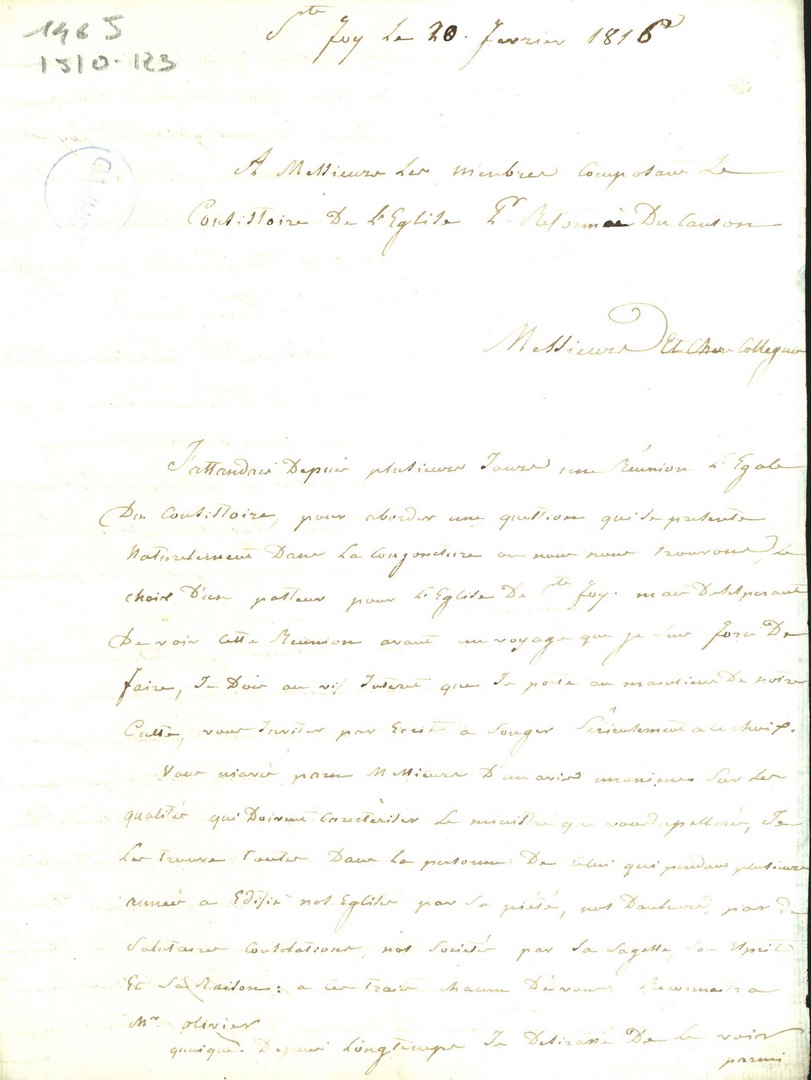 196 J
1510-123
Ste foy Le 20. fevrier 1816
A Messieurs Les membres Composant Le
Consistoire De L'Eglise Pte Reformée Du Canton
Messieurs Et Chers Collegues
J'attandais Depuis plusieurs Jours une Réunion L'Egale
Du Consistoire, pour aborder une question qui se presente
Naturelement Dans La Conjoncture ou nous nous trouvons, Le
choix D'un pasteur pour L'Eglise De Ste foy. mais Desesperant
De voir Cette Reunion avant un voyage que je suis forcé De
faire, Je Dois au vif Interet que Je porte au maintient De notre
Culte, vous Inviter par Ecrit a Songer Sérieusement a ce choix.
Vous m'avés paru Messieurs D'un avis unanime Sur Les
qualités qui Doivent Caractériser Le ministre que vous apellerés, Je
Les trouve toutes Dans La personne De celui qui pendant plusieurs
années a Edifié nos Eglises par Sa piété, nos Douleurs, par de
Salutaires Consolations, nos Sociétés par Sa Sagesse, Son Esprit
Et Sa Raison: a ces traits chacun De vous Reconnaitra
Mr. olivier
quoique Depuis Longtemps Je Desirasse De Le voir
parmi